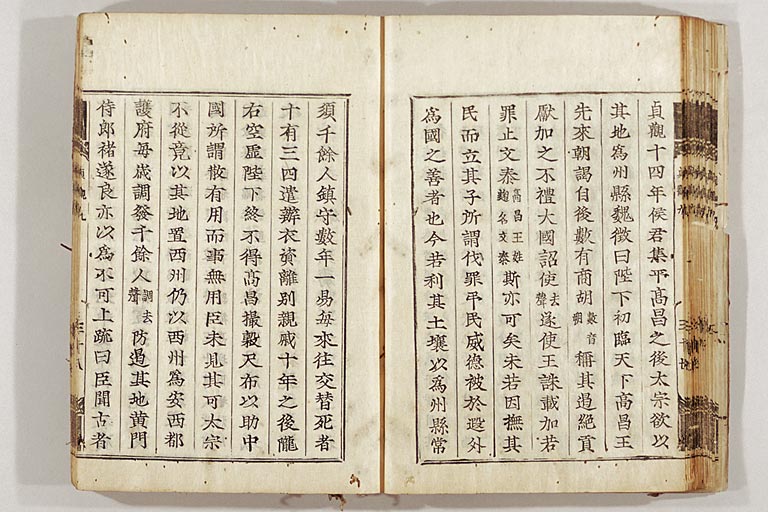 貞觀十四年侯君集平高昌之後太宗欲以
其地爲州縣魏徵曰陛下初臨天下高昌王
先來朝謁自後數有商胡數音朔稱其遏絕貢
獻加之不禮大國詔使去聲遂使王誅載加若
罪止文泰高昌王姓麴名文泰斯亦可矣未若因撫其
民而立其子所謂伐罪弔民威德被於遐外
爲國之善者也今若利其土壤以爲州縣常
須千餘人鎮守數年一易每來往交替死者
十有三四遣辦衣資離別親戚十年之後隴
右空虛陛下終不得高昌撮穀尺布以助中
國所謂散有用而事無用臣未見其可太宗
不從竟以其地置西州仍以西州爲安西都
護府每歲調發千餘人調去聲防遏其地黃門
侍郎褚遂良亦以爲不可上疏曰臣聞古者